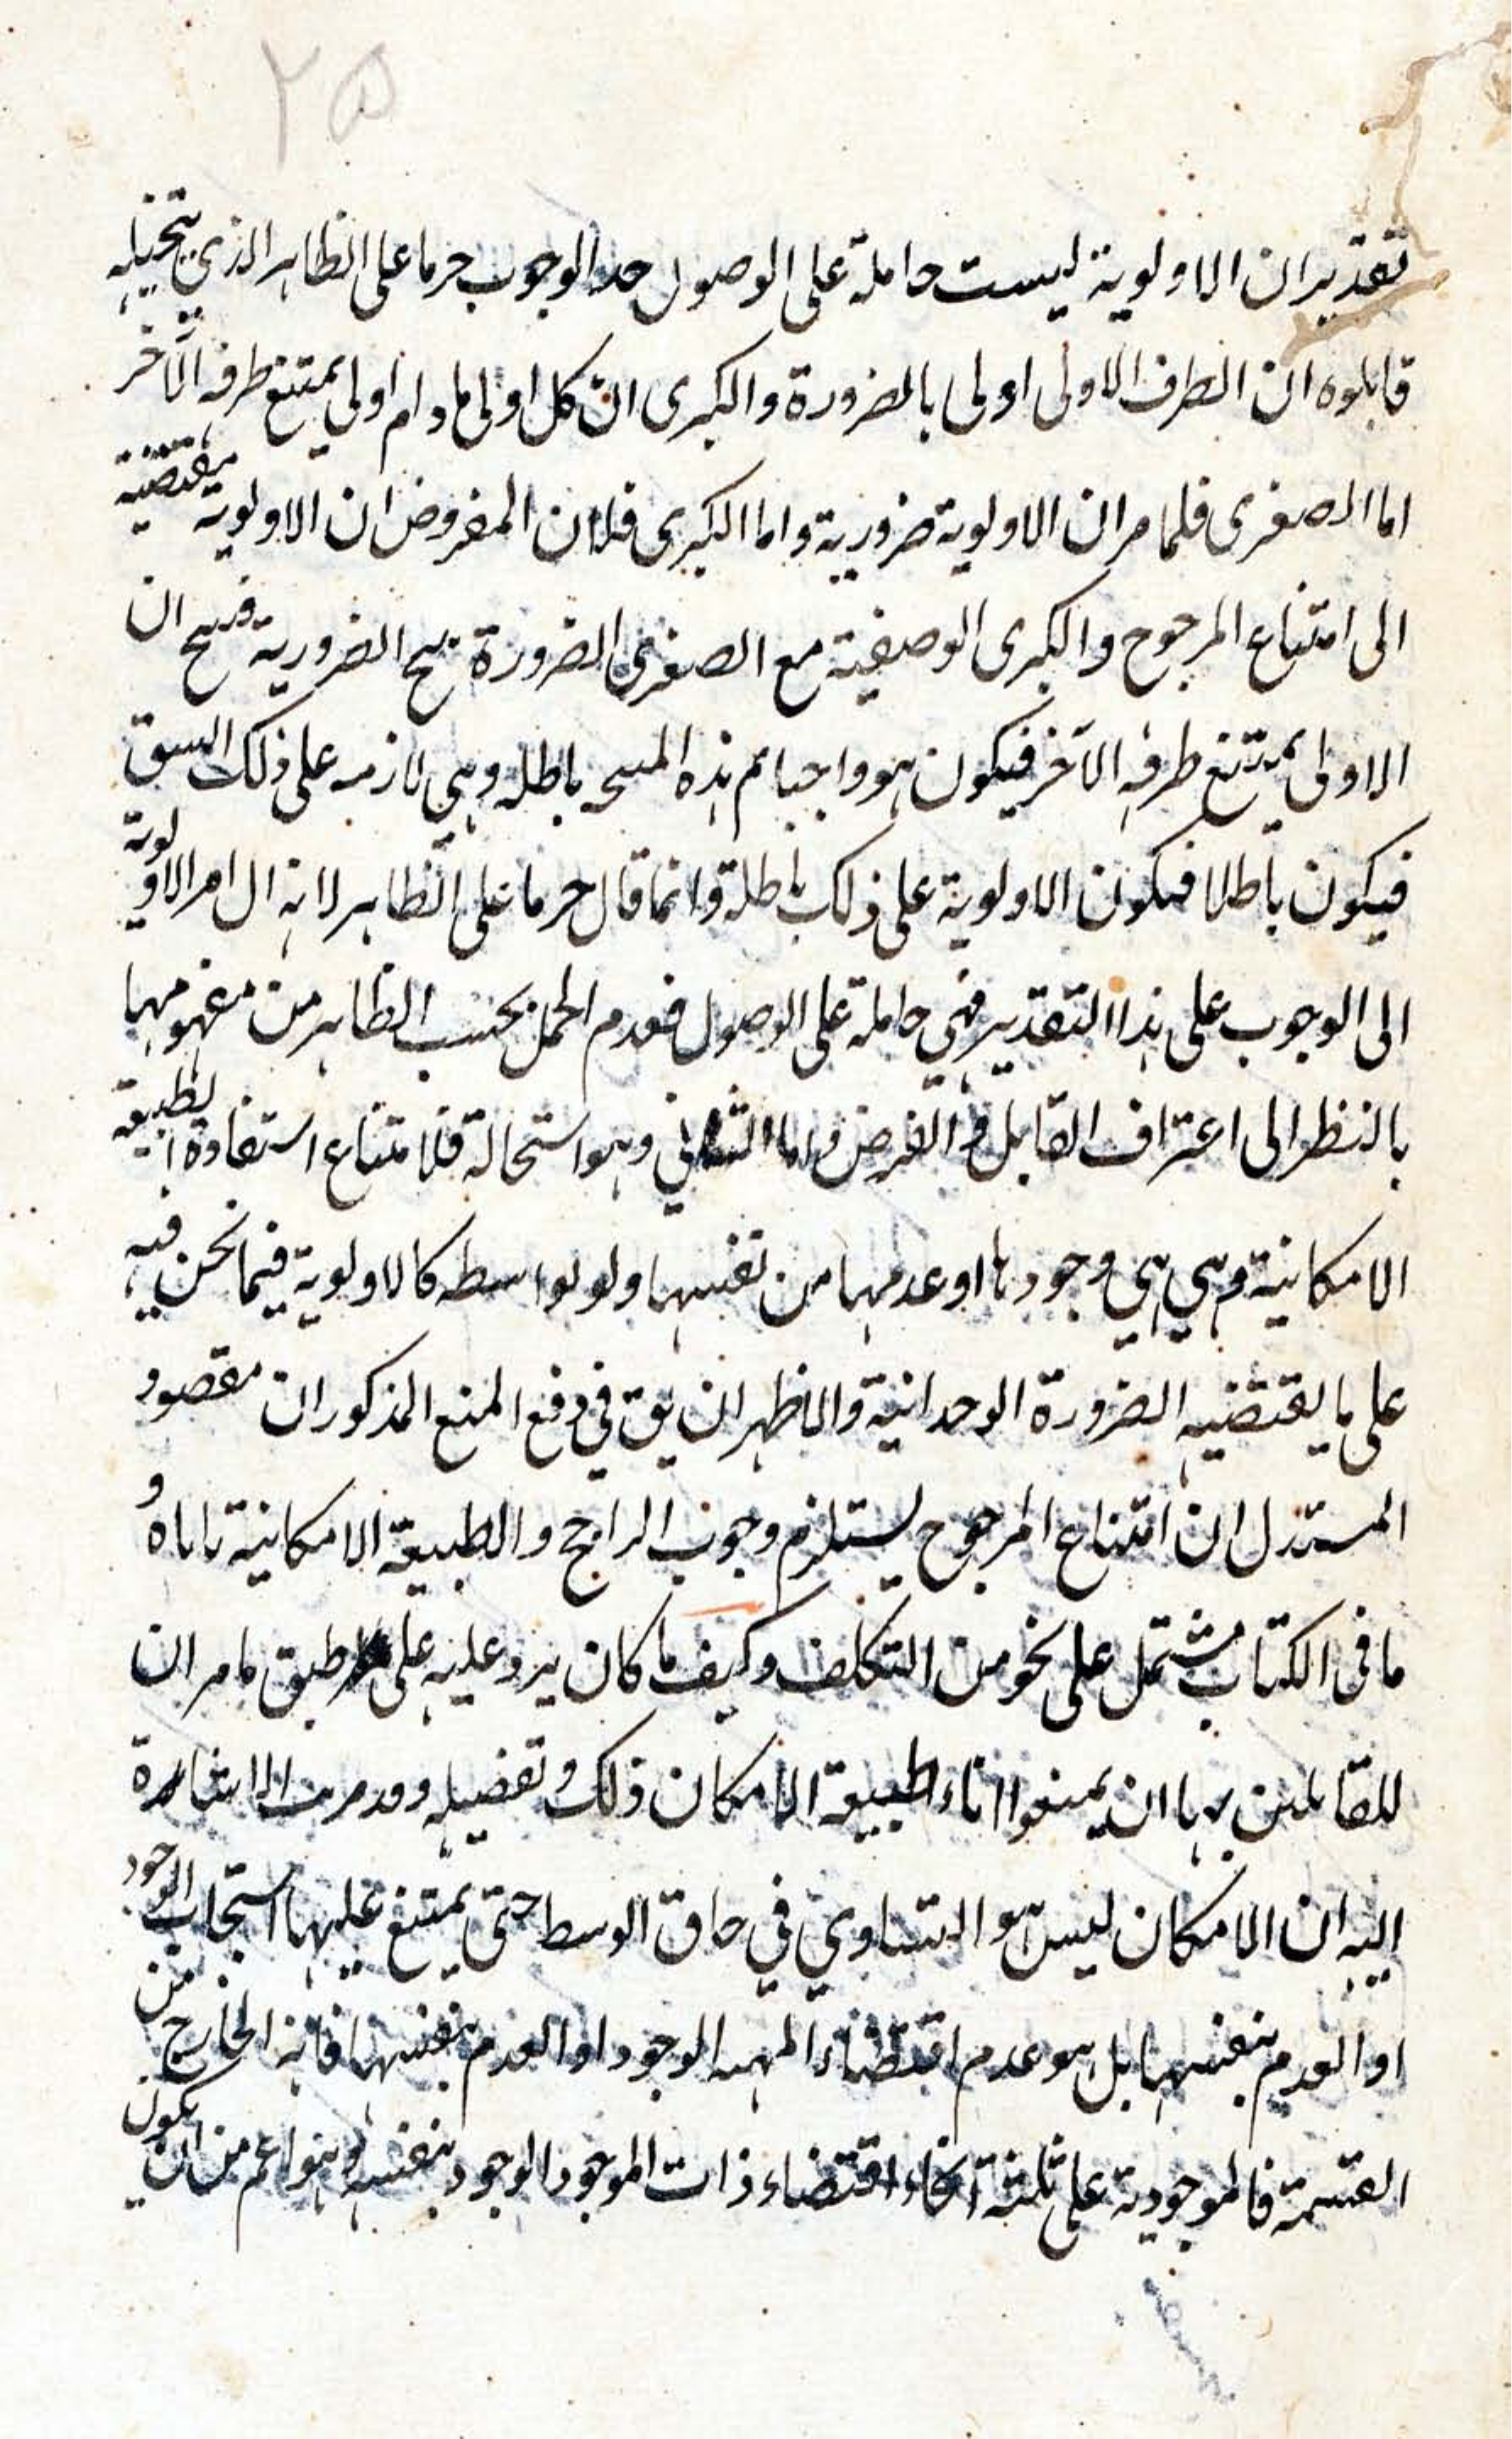 ٢٥
تقدير ان الاولوية ليست حاملة على الوصول حد الوجوب جرما على الظاهر الذي يتخيله
قايلوه ان الطرف الاولى اولى بالضرورة والكبرى ان كل اولى مادام اولى يمتنع طرفه الآخر
اما الصغرى فلما مر ان الاولوية ضرورية واما الكبرى فلان المفروض ان الاولوية مقتضية
الى امتناع المرجوح والكبرى الوصفية مع الصغرى الضرورة ينتج الضرورية فينتج ان
الاولى يمتنع طرفه الآخر فيكون هو واجبا ثم هذه النتيجه باطله وهي لازمه على ذلك السوق
فيكون باطلا فيكون الاولوية على ذلك باطلة وانما قال جرما على الظاهر لانه ال امر الاولوية
الى الوجوب على هذا التقدير فهي حاملة على الوصول فعدم الحمل بحسب الظاهر من مفهومها
بالنظر الى اعتراف القايل في الفرض واما الثاني وهو استحالة فلامتناع استفادة الطبيعة
الامكانية وهي هي وجودها او عدمها من نفسها ولو بواسطه كالاولوية فيما نحن فيه
على ما يقتضيه الضرورة الوحدانية والاظهر ان يق في دفع المنع المذكور ان مقصود
المستدل ان امتناع المرجوح يستلزم وجوب الراجح والطبيعة الامكانية تاباه و
ما في الكتاب مشتمل على نحو من التكلف وكيف ما كان يرد عليه على طبق ما مر ان
للقايلين بها ان يمنعوا اباء طبيعة الامكان ذلك وتفصيله وقد مرت الاشارة
اليه ان الامكان ليس هو التساوي في حاق الوسط حتى يمتنع عليها استجاب الوجود
او العدم بنفسها بل هو عدم اقتضاء المهيه الوجود او العدم بنفسها فانه الخارج من
القسمة فالموجودية على ثلثة انحاء اقتضاء ذات الموجود الوجود بنفسه وهو اعم من ان يكون